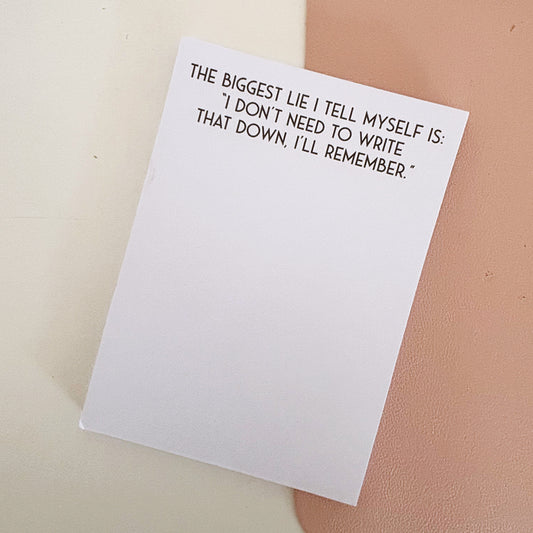 THE BIGGEST LIE I TELL MYSELF IS:
"I DON'T NEED TO WRITE
THAT DOWN, I'LL REMEMBER."